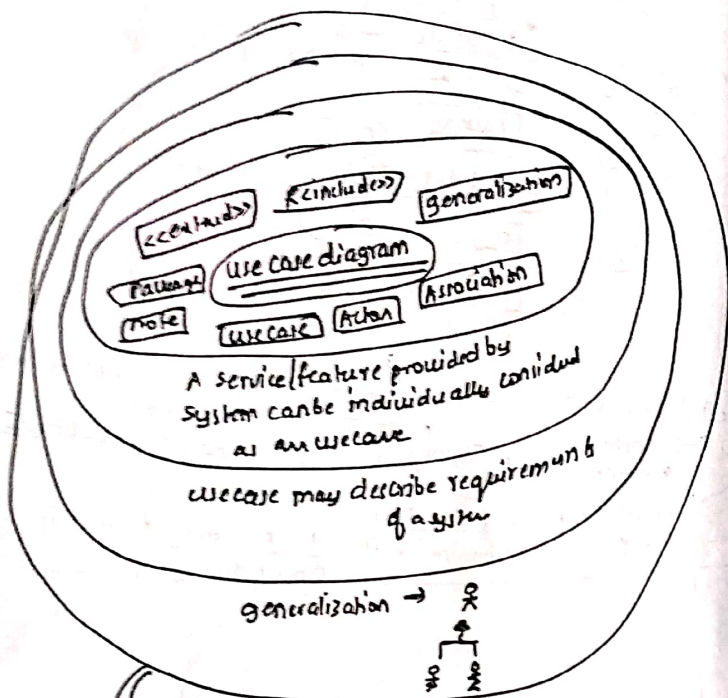 <<extend>>
<<include>>
generalization
Package
use case diagram
note
usecase
Actor
Association
A service/feature provided by
system can be individually considered
as an usecase.
usecase may describe requirements
of a system
generalization →